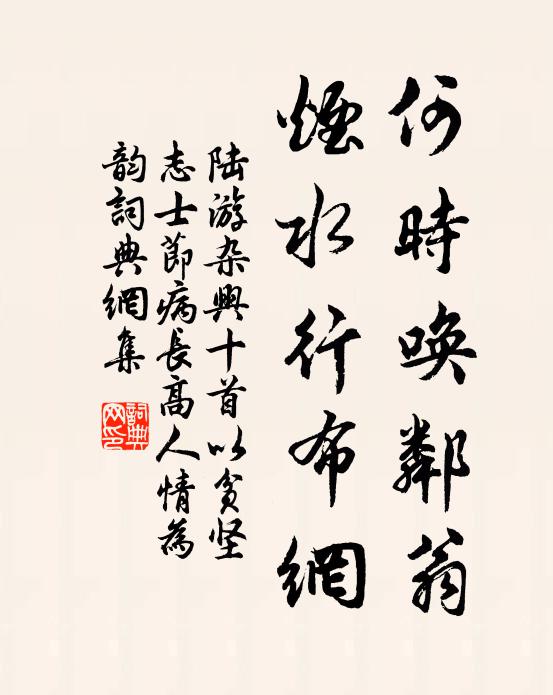 何時喚鄰翁
煙水行布網
陆游杂興十首以貧坚
志士節病長高人情為
韵詞典網集
詞典網印